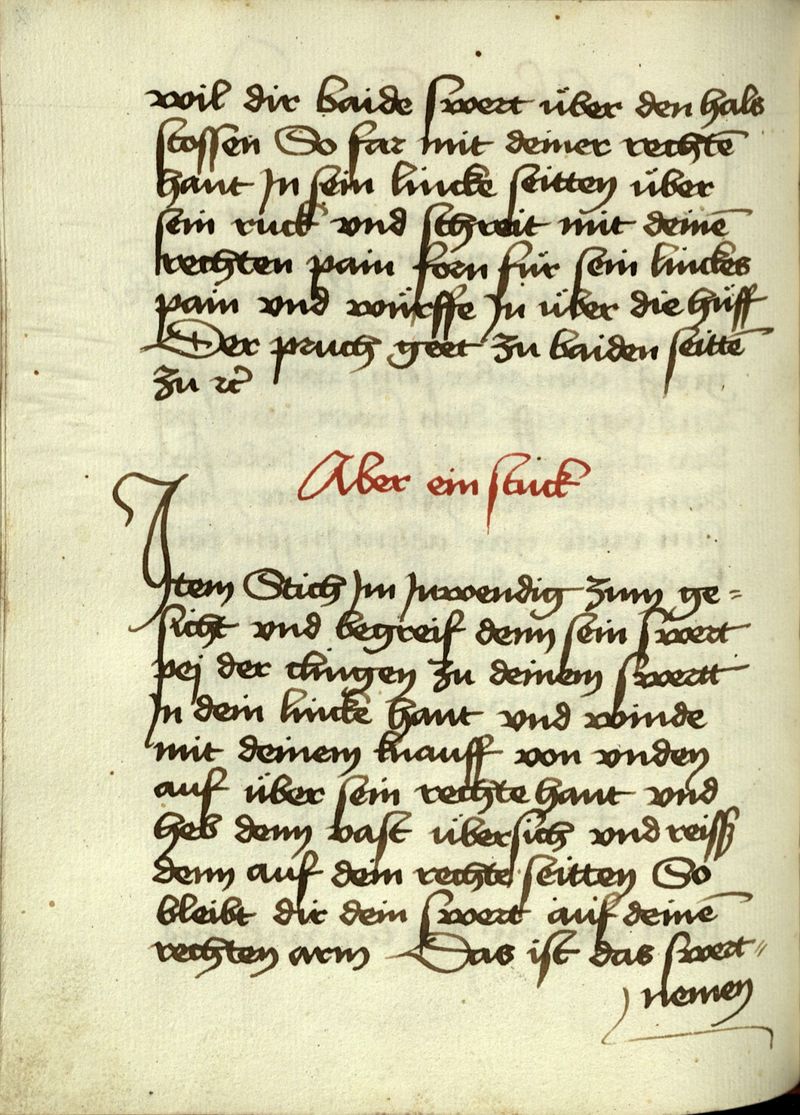 wil dir baide swert über den hals
stossen So far mit deiner rechtē
hant Jn sein lincke seitten über
sein ruck vnd schreit mit deinē
rechten pain forn für sein linckes
pain vnd würffe Jn über die hüff
Der pruch geet zu baiden seittē
zu ꝛc̄
Aber ein stuck
Jtem Stich Jm Jnwendig zum ge=
sicht vnd begreif denn sein swert
pej der clingen zu deinem swertt
Jn dein lincke hant vnd winde
mit deinem knauff von vnden
auf über sein rechte hant vnd
heb denn vast übersich vnd reiß
denn auf dein rechte seitten So
bleibt dir dein swert auf deinē
rechten arm Das ist das swert=
nemen